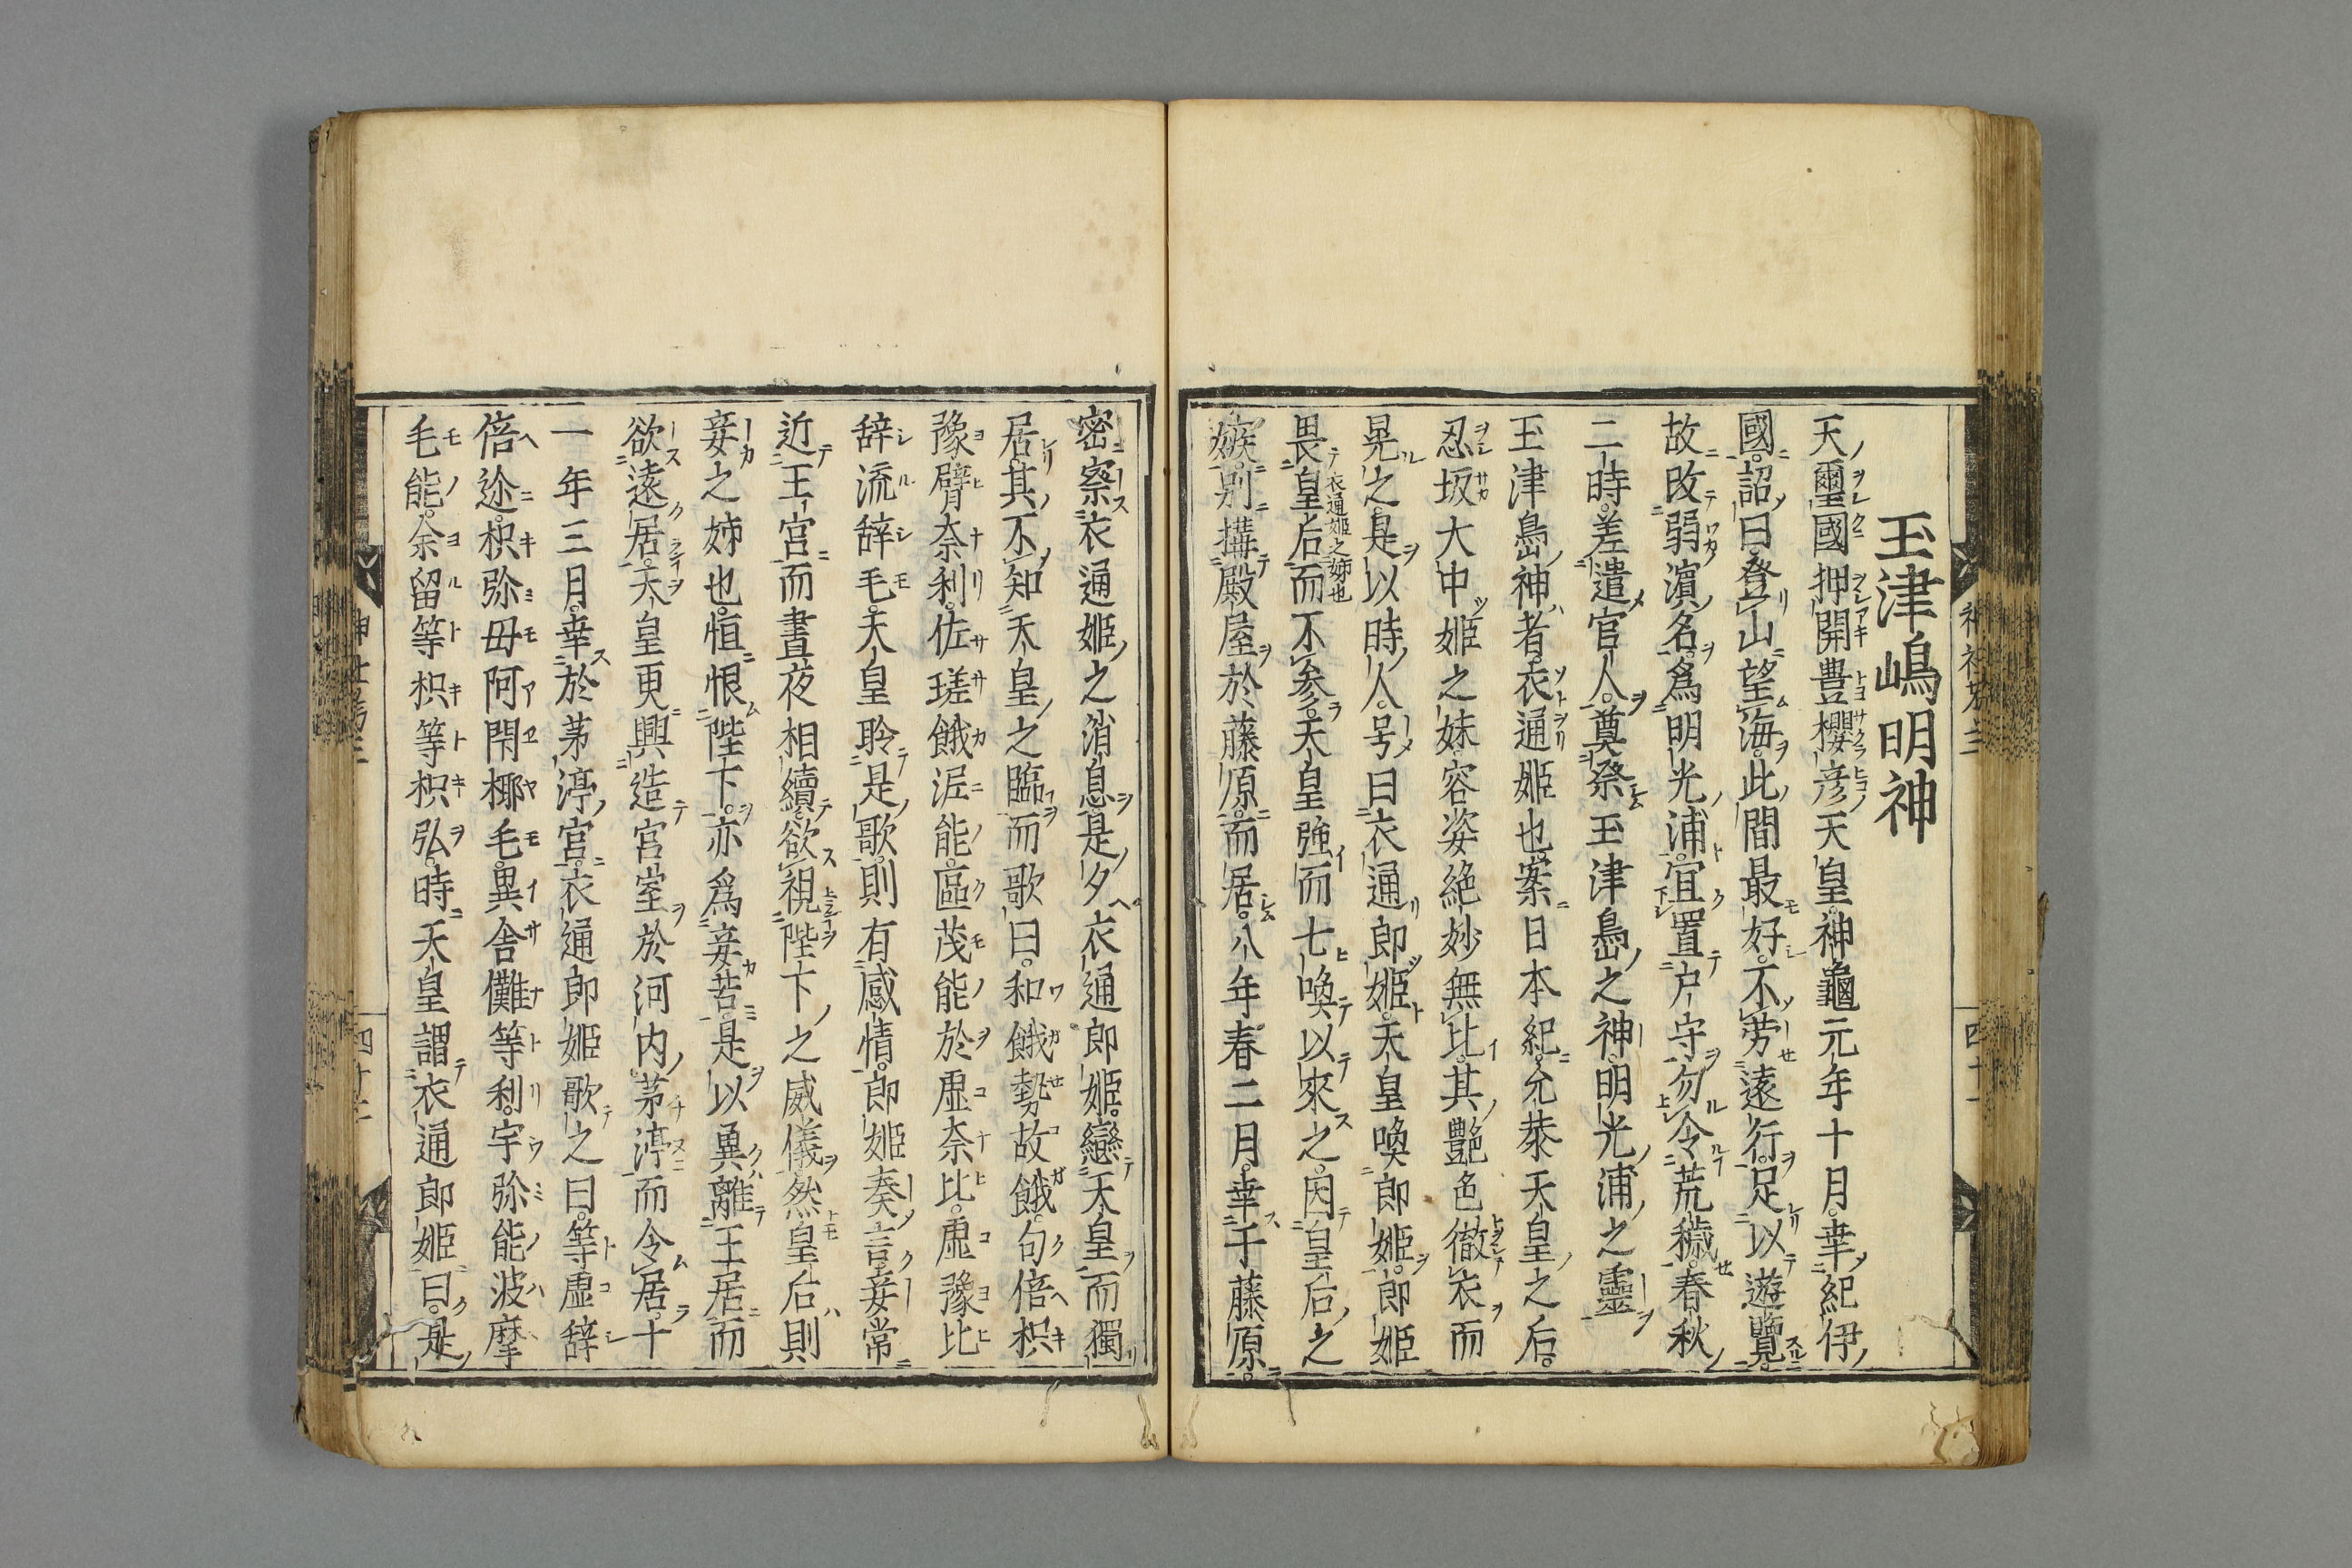 玉津嶋明神
天璽國押開豊櫻彦天皇。神龜元年十月。幸紀伊
國。詔曰。登山望海。此間最好。不労遠行。足以遊覽。
故改弱濵名。爲明光浦。宜置戸守。勿令荒穢。春秋
二時。差遣官人。奠祭玉津嶌之神。明光浦之靈
玉津嶌神者。衣通姫也。案日本紀。允恭天皇之后。
忍坂大中姫之妹。容姿絶妙無比。其艷色徹衣而
晃之。是以時人。号曰衣通郎姫。天皇喚郎姫。郎姫
畏皇后而不参。天皇強而七喚以來之。因皇后之
衣通姫之姉也
嫉。別搆殿屋於藤原。而居。八年春二月。幸于藤原。
密察衣通姫之消息。是夕衣通郎姫。戀天皇而獨
居。其不知天皇之臨而歌曰。和餓勢故餓。句倍枳
豫臂奈利。佐瑳餓泥能。區茂能於虚奈比。虚豫比
辞流辞毛。天皇聆是歌。則有感情。郎姫奏言。妾常
近王宮而晝夜相續。欲視陛下之威儀。然皇后則
妾之姉也。恒恨陛下。亦爲妾苦。是以異離王居而
欲遠居。天皇更興造宮室於河内茅渟而令居。十
一年三月。幸於茅渟宮。衣通郎姫歌之曰。等虚辞
倍迩。枳弥毋阿閇椰毛。異舎儺等利。宇弥能波摩
毛能。余留等枳等枳弘。時天皇謂衣通郎姫曰。是